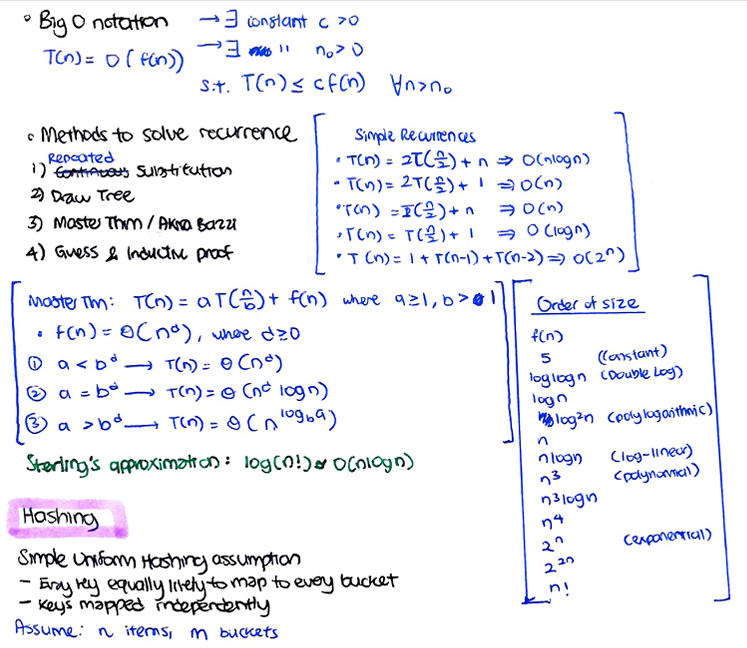 ° Big O notation → ∃ constant c > 0
T(n) = O(f(n)) → ∃ " n₀ > 0
s.t. T(n) ≤ cf(n) ∀n>n₀
• Methods to solve recurrence
1) Repeated Continuous Substitution
2) Draw Tree
3) Master Thm / Akra Bazzi
4) Guess & Inductive proof
Simple Recurrences
• T(n) = 2T(n/2) + n ⇒ O(nlogn)
• T(n) = 2T(n/2) + 1 ⇒ O(n)
• T(n) = T(n/2) + n ⇒ O(n)
• T(n) = T(n/2) + 1 ⇒ O(logn)
• T(n) = 1 + T(n-1) + T(n-2) ⇒ O(2ⁿ)
Master Tm: T(n) = aT(n/b) + f(n) where a≥1, b > 1
• f(n) = Θ(nᵈ), where d≥0
① a < bᵈ → T(n) = Θ(nᵈ)
② a = bᵈ → T(n) = Θ(nᵈ logn)
③ a > bᵈ → T(n) = Θ(n^(log_b a))
Sterling's approximation: log(n!) ≈ O(nlogn)
Order of size
f(n)
5 (constant)
loglogn (Double Log)
logn
log²n (polylogarithmic)
n
nlogn (log-linear)
n³ (polynomial)
n³logn
n⁴
2ⁿ (exponential)
2²ⁿ
n!
Hashing
Simple Uniform Hashing assumption
- Every key equally likely to map to every bucket
- Keys mapped independently
Assume: n items, m buckets